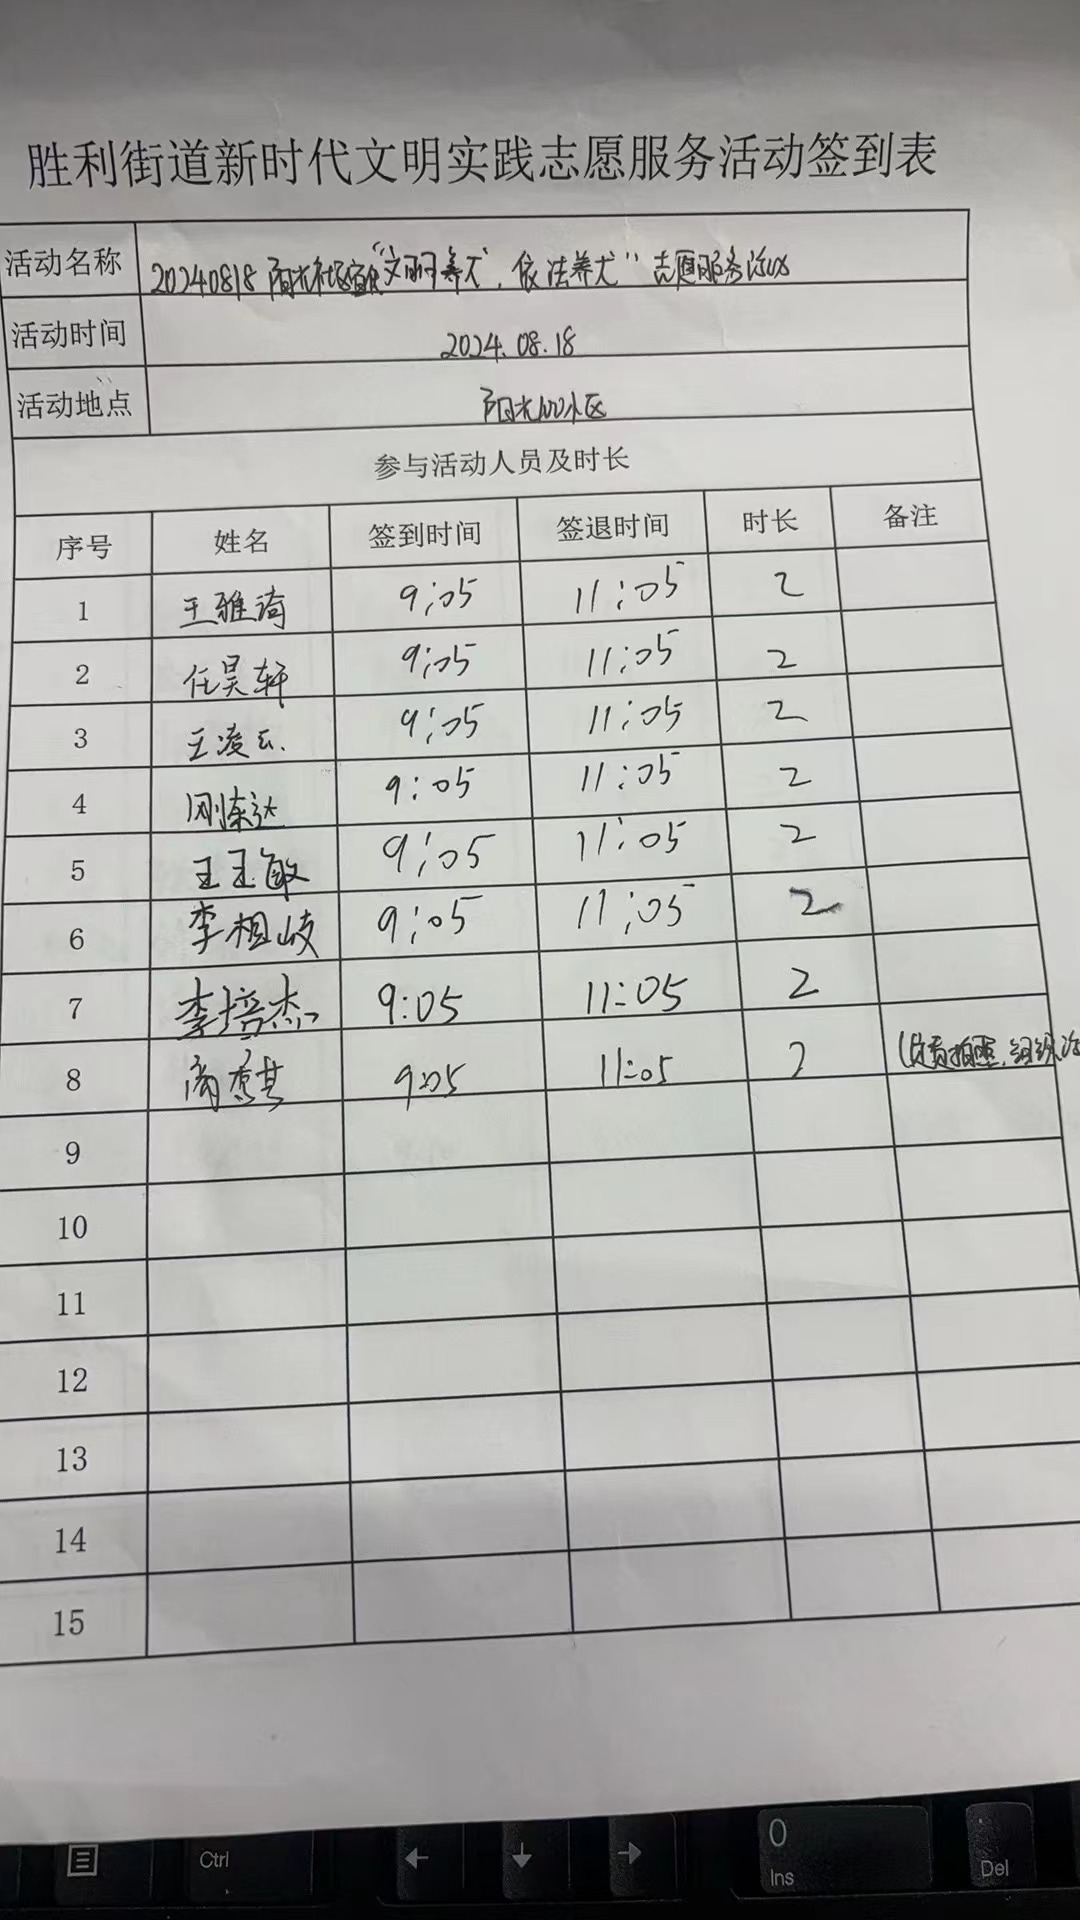 胜利街道新时代文明实践志愿服务活动签到表
活动名称 20240818阳光社区"文明养犬,依法养犬"志愿服务活动
活动时间 2024.08.18
活动地点 阳光100小区
参与活动人员及时长
序号 姓名 签到时间 签退时间 时长 备注
1 王雅琦 9:05 11:05 2
2 任昊轩 9:05 11:05 2
3 王凌云 9:05 11:05 2
4 9:05 11:05 2
5 王玉敏 9:05 11:05 2
6 李相岐 9:05 11:05 2
7 李培杰 9:05 11:05 2
8 9:05 11:05 2 (负责拍照,组织活
9
10
11
12
13
14
15
Ctrl
←
↓
→
0
Ins
.
Del